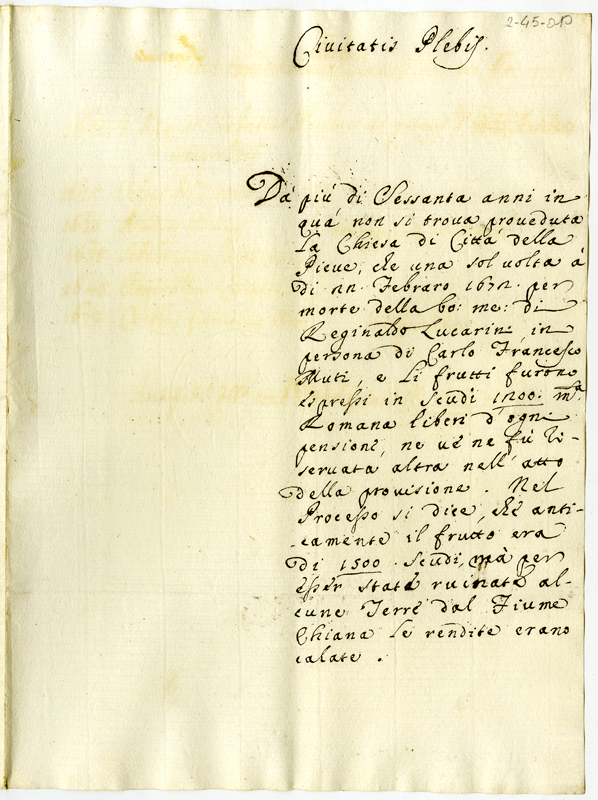 2-45-
Civitatis Plebis.
Dà più di Sessanta anni in
quà non si trova proveduta
la Chiesa di Città della
Pieve, che una sol volta à
di Febraro 1672. per
morte della bo: me: di
Reginaldo Lucarini, in
persona di Carlo Francesco
Muti, e li frutti furono
espressi in Scudi 1200. m.ta
Romana liberi d'ogni
pensione, ne ve ne fù ri-
servata altra nell'atto
della provisione. Nel
Processo si dice, chè anti-
-camente il frutto era
di 1500. Scudi, mà per
esser state ruinate al-
cune Terre dal Fiume
Chiana le rendite erano
calate.